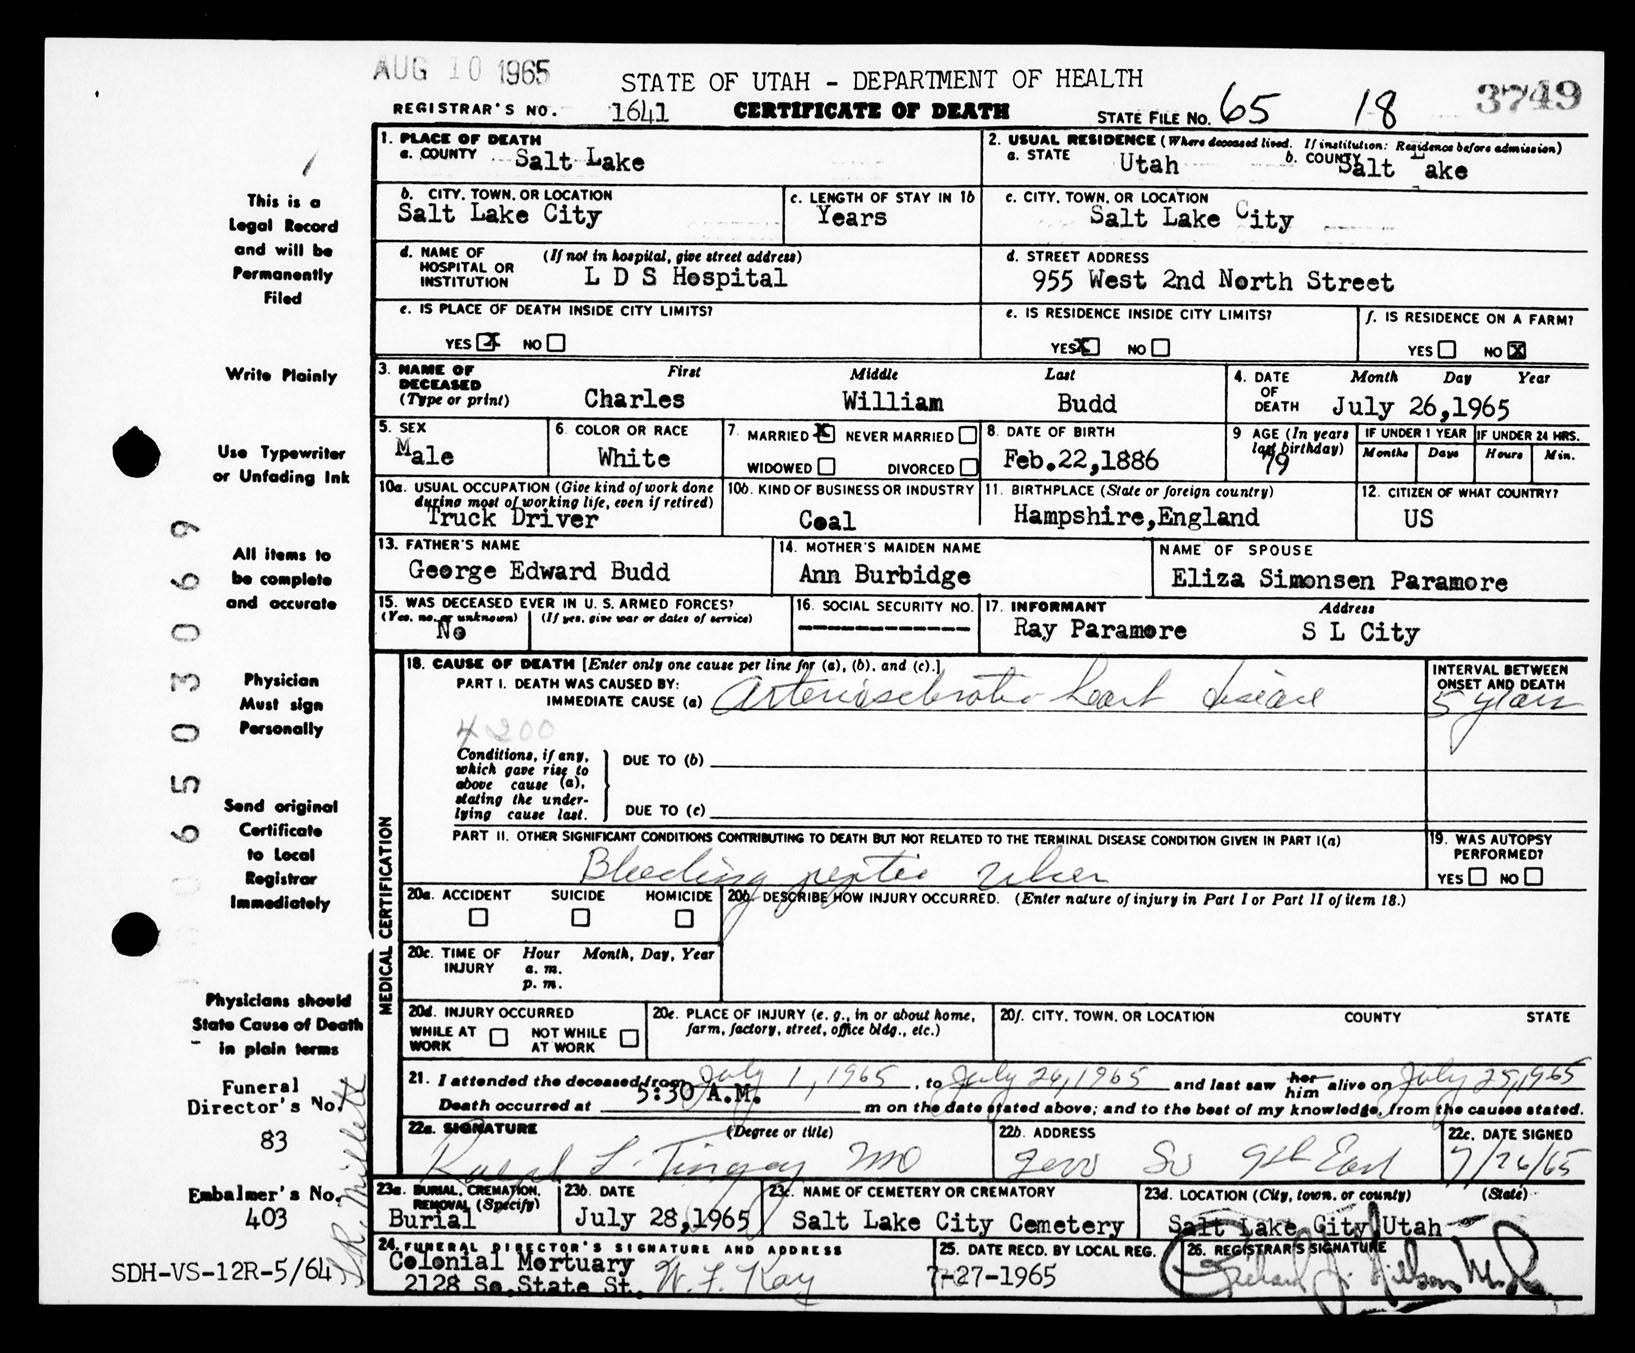 AUG 10 1965
STATE OF UTAH - DEPARTMENT OF HEALTH
3749
REGISTRAR'S NO. 1641 CERTIFICATE OF DEATH STATE FILE NO. 65 18
This is a
Legal Record
and will be
Permanently
Filed
Write Plainly
Use Typewriter
or Unfading Ink
All items to
be complete
and accurate
Physician
Must sign
Personally
Send original
Certificate
to Local
Registrar
Immediately
Physicians should
State Cause of Death
in plain terms
Funeral
Director's No.
83
Embalmer's No.
403
SDH-VS-12R-5/64
6503069
1. PLACE OF DEATH
a. COUNTY Salt Lake
2. USUAL RESIDENCE (Where deceased lived. If institution: Residence before admission)
a. STATE Utah b. COUNTY Salt Lake
b. CITY, TOWN, OR LOCATION
Salt Lake City
c. LENGTH OF STAY IN 1b
Years
c. CITY, TOWN, OR LOCATION
Salt Lake City
d. NAME OF HOSPITAL OR INSTITUTION (If not in hospital, give street address)
L D S Hospital
d. STREET ADDRESS
955 West 2nd North Street
e. IS PLACE OF DEATH INSIDE CITY LIMITS?
YES X NO
e. IS RESIDENCE INSIDE CITY LIMITS?
YES X NO
f. IS RESIDENCE ON A FARM?
YES NO X
3. NAME OF DECEASED (Type or print) First Middle Last
Charles William Budd
4. DATE OF DEATH Month Day Year
July 26,1965
5. SEX
Male
6. COLOR OR RACE
White
7. MARRIED X NEVER MARRIED
WIDOWED DIVORCED
8. DATE OF BIRTH
Feb.22,1886
9 AGE (In years last birthday)
79
IF UNDER 1 YEAR IF UNDER 24 HRS.
Months Days Hours Min.
10a. USUAL OCCUPATION (Give kind of work done during most of working life, even if retired)
Truck Driver
10b. KIND OF BUSINESS OR INDUSTRY
Coal
11. BIRTHPLACE (State or foreign country)
Hampshire,England
12. CITIZEN OF WHAT COUNTRY?
US
13. FATHER'S NAME
George Edward Budd
14. MOTHER'S MAIDEN NAME
Ann Burbidge
NAME OF SPOUSE
Eliza Simonsen Paramore
15. WAS DECEASED EVER IN U. S. ARMED FORCES?
(Yes, no, or unknown) (If yes, give war or dates of service)
No
16. SOCIAL SECURITY NO.
17. INFORMANT Address
Ray Paramore S L City
MEDICAL CERTIFICATION
18. CAUSE OF DEATH [Enter only one cause per line for (a), (b), and (c).]
PART I. DEATH WAS CAUSED BY:
IMMEDIATE CAUSE (a) Arteriosclerotic heart disease
INTERVAL BETWEEN ONSET AND DEATH
5 years
4200
Conditions, if any, which gave rise to above cause (a), stating the underlying cause last.
DUE TO (b)
DUE TO (c)
PART II. OTHER SIGNIFICANT CONDITIONS CONTRIBUTING TO DEATH BUT NOT RELATED TO THE TERMINAL DISEASE CONDITION GIVEN IN PART I(a)
Bleeding peptic ulcer
19. WAS AUTOPSY PERFORMED?
YES NO
20a. ACCIDENT SUICIDE HOMICIDE
20b. DESCRIBE HOW INJURY OCCURRED. (Enter nature of injury in Part I or Part II of item 18.)
20c. TIME OF INJURY Hour Month, Day, Year
a. m.
p. m.
20d. INJURY OCCURRED
WHILE AT WORK NOT WHILE AT WORK
20e. PLACE OF INJURY (e. g., in or about home, farm, factory, street, office bldg., etc.)
20f. CITY, TOWN, OR LOCATION COUNTY STATE
21. I attended the deceased from July 1, 1965, to July 26, 1965 and last saw her him alive on July 25, 1965
Death occurred at 5:30 A.M. m on the date stated above; and to the best of my knowledge, from the causes stated.
22a. SIGNATURE (Degree or title)
Ralph L. Tingey MD
22b. ADDRESS
So 9th East
22c. DATE SIGNED
7/26/65
23a. BURIAL, CREMATION, REMOVAL (Specify)
Burial
23b. DATE
July 28,1965
23c. NAME OF CEMETERY OR CREMATORY
Salt Lake City Cemetery
23d. LOCATION (City, town, or county) (State)
Salt Lake City Utah
24. FUNERAL DIRECTOR'S SIGNATURE AND ADDRESS
Colonial Mortuary
2128 So.State St. W. F. Kay
25. DATE RECD. BY LOCAL REG.
7-27-1965
26. REGISTRAR'S SIGNATURE